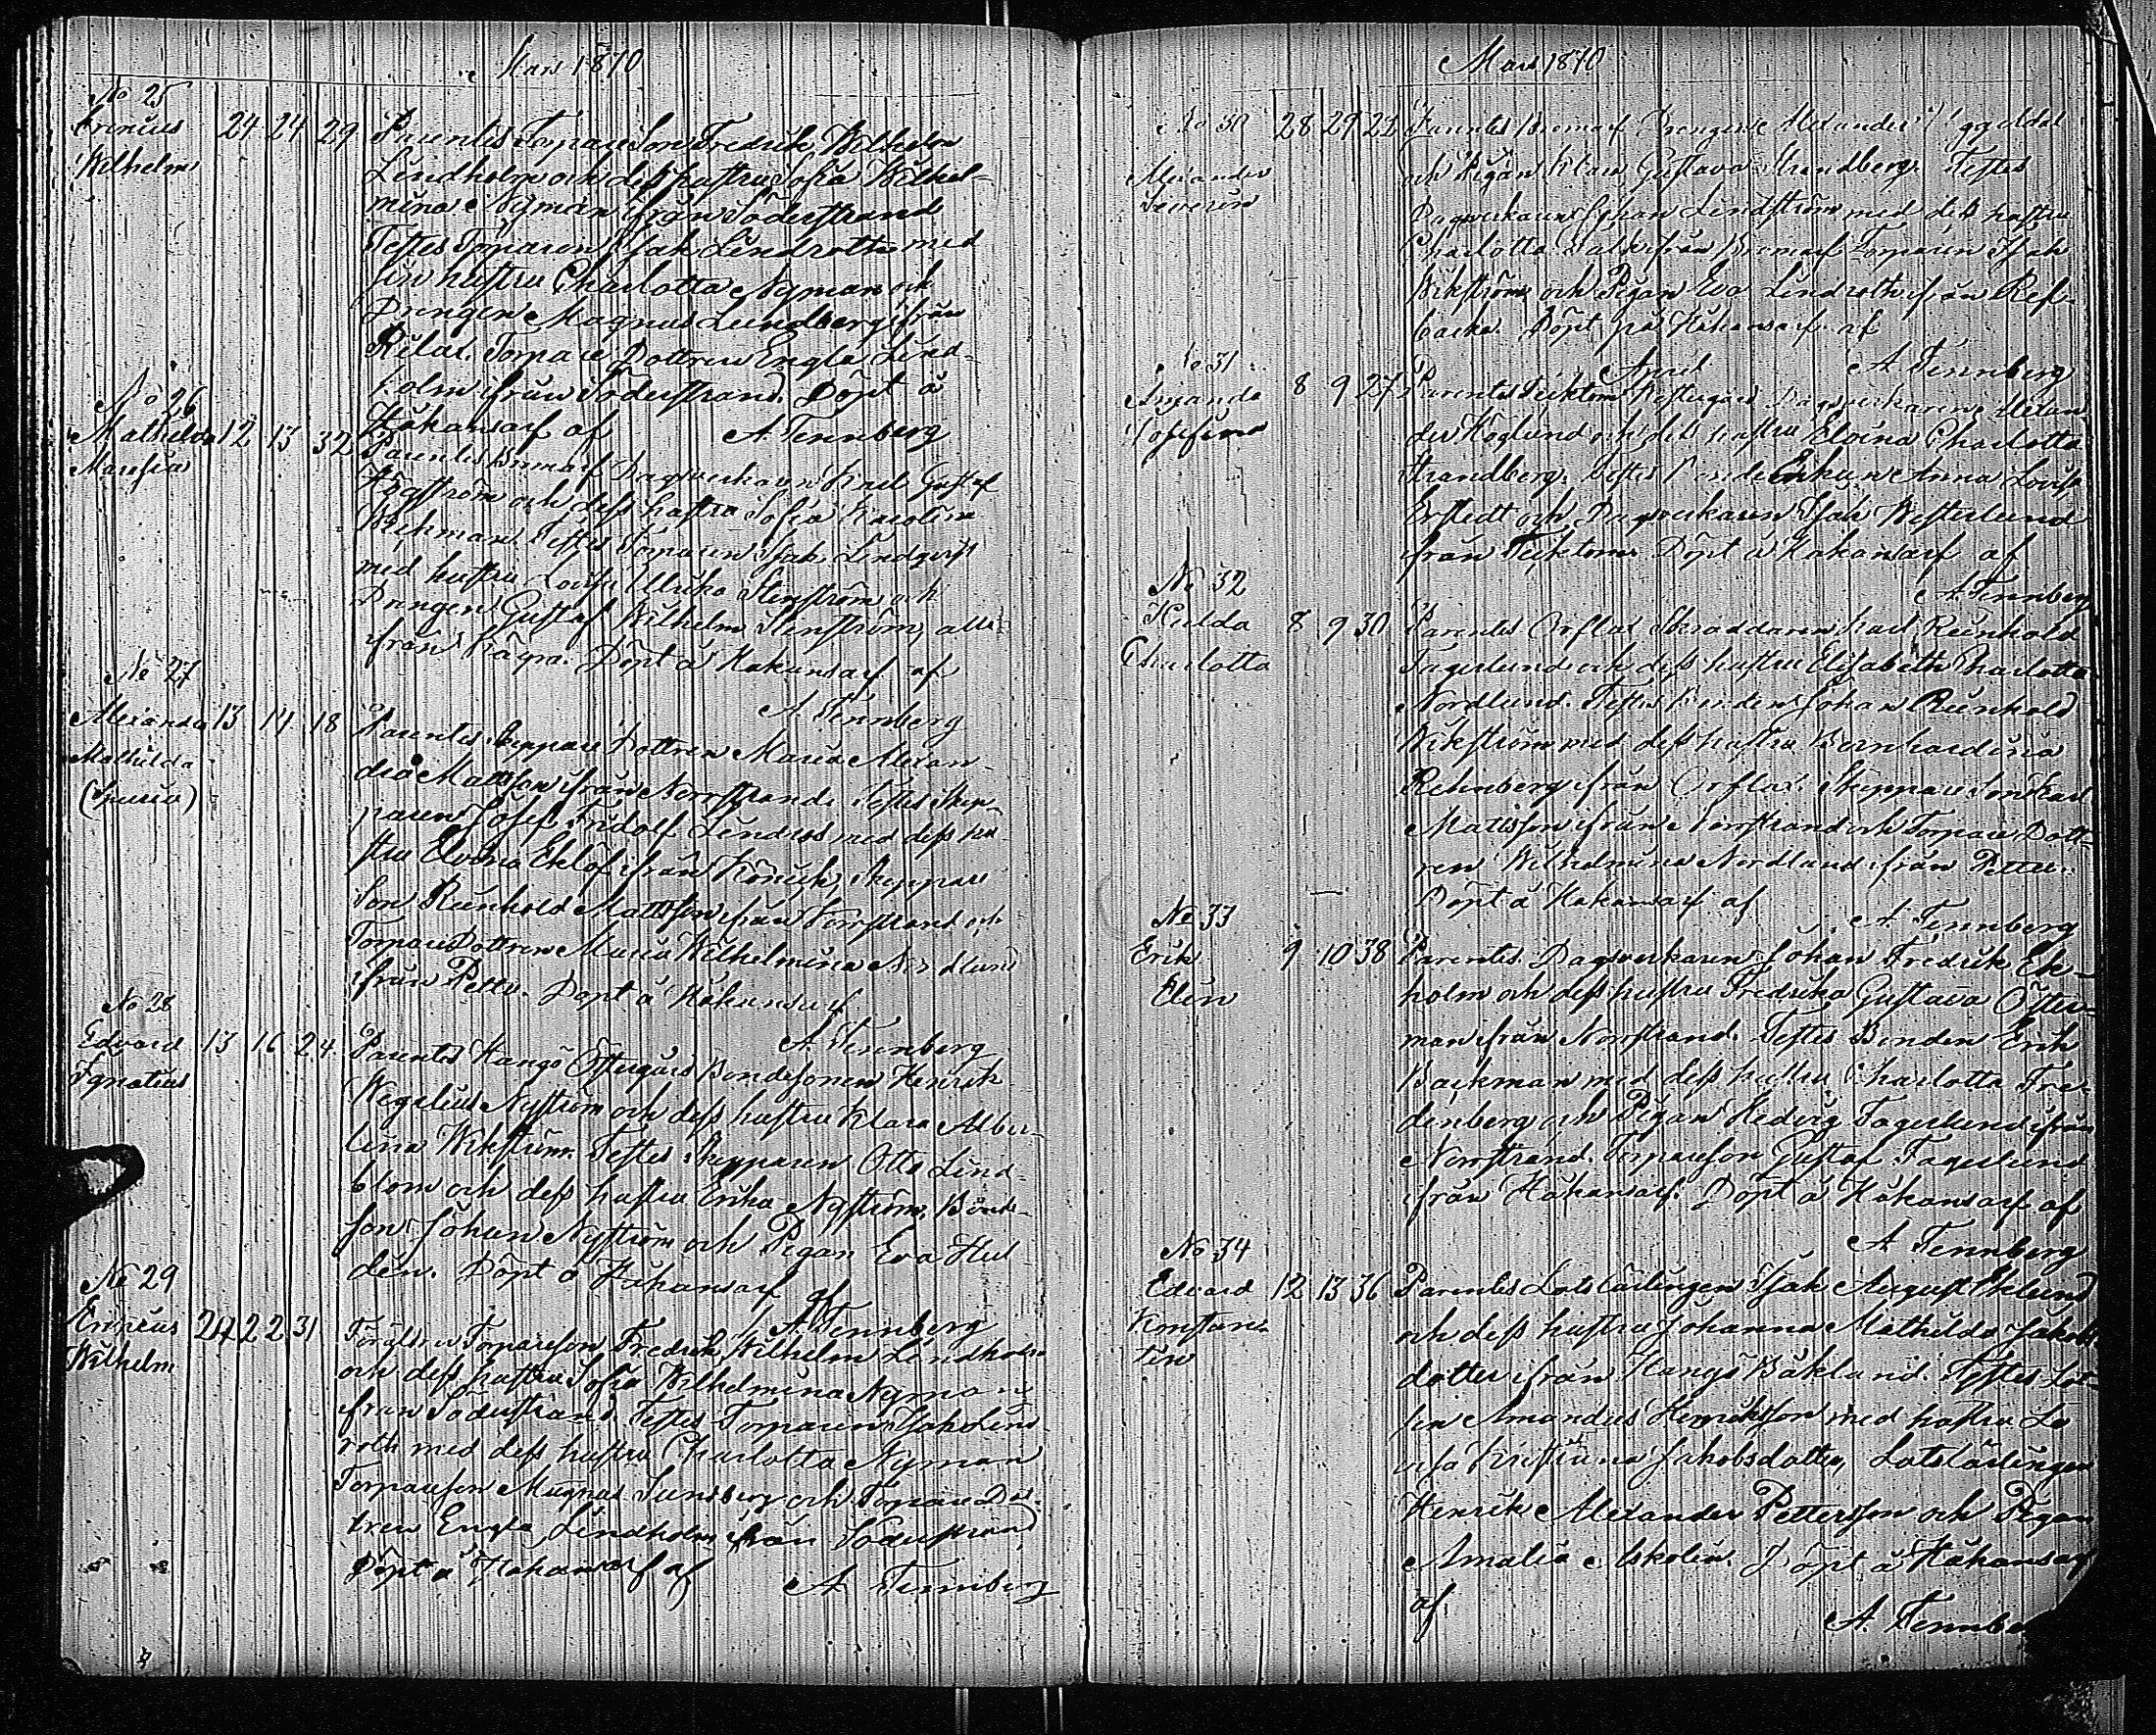 Mars 1870
No 25
Irenius 24 24 29 Parentes Torpare Son Fredrik Wilhelm
Wilhelm Lindholm och dess hustru Sofia Wilhel-
mina Nyman ifrån Söderstrand
Testes Torparen Isak Lindroth med
sin hustru Charlotta Nyman och
Drengen Magnus Lundberg ifrån
Rilax. Torpare Dottren Engla Lind-
holm ifrån Söderstrand. Döpt å
Håkansarf af A. Tennberg
No 26
Mathilda 12 13 32 Parentes Bromarf Dagsverkaren Karl Gustaf
Maresia Hägström och dess hustru Sofia Karolina
Wickman Testes Torparen Isak Lindqvist
med hustru Lovisa Ulrika Stenström och
Drengen Gustaf Wilhelm Stenström, alla
från Kägra. Döpt å Håkansarf af
A. Tennberg
No 27
Alexandra 13 14 18 Parentes Skeppare Dottren Maria Alexan-
Mathilda dra Mattsson ifrån Norrstrand. Testes Skep-
(Spuria) paren Josef Fridolf Lindros med dess hu-
stru Elvina Eklöf ifrån Könick, Skeppare
Son Reinhold Mattsson ifrån Norrstrand och
Torpare Dottren Maria Wilhelmina Nordlund
ifrån Pette. Döpt å Håkansarf
A. Tennberg
No 28
Edvard 13 16 24 Parentes Hangö Östergård Bondesonen Henrik
Ignatius Wegelius Nyström och dess hustru Klara Alber-
tina Wikström. Testes Skepparen Otto Lind-
blom och dess hustru Erika Nyström, Bonde-
son Johan Nyström och Pigan Eva Hul
dén. Döpt å Håkansarf af
A. Tennberg
No 29
Irinius 24 22 31 Föräldrar Torpareson Fredrik Wilhelm Lindholm
Wilhelm och dess hustru Sofia Wilhelmina Nyman
ifrån Söderstrand Testes Torparen Isak Lind-
roth med dess hustru Charlotta Nyman
Torpareson Magnus Lundberg och Torpare Dot-
tren Engla Lindholm ifrån Söderstrand
Döpt å Håkansarf af A. Tennberg
Mars 1870
No 30 28 29 21 Parentes Bromarf Drengen Alexander
Alexander och Pigan Klara Gustava Strandberg. Testes
Severin Dagsverkaren Johan Lindström med dess hustru
Charlotta ifrån Bromarf Torparen Isak
Wikström och Pigan Eva Lindroth ifrån Ref-
backa. Döpt på Håkansarf af
April A. Tennberg
No 31
Amanda 8 9 27 Parentes Tecktom Westergård Dagsverkaren Alexan
Josefina der Höglund och dess hustru Elvina Charlotta
Strandberg. Testes Enkan Anna Lovisa
Erstedt och Dagsverkaren Isak Westerlund
från Tecktom. Döpt å Håkansarf af
A. Tennberg
No 32
Hulda 8 9 30 Parentes Orflax Skraddaren Karl Reinhold
Charlotta Fagerlund och dess hustru Elisabeth Charlotta
Nordlund. Testes Bonden Johan Reinhold
Wikström med dess hustru Bernhardina
Rehnberg ifrån Orflax. Skeppare Son Karl
Mattsson ifrån Norrstrand och Torpare Dott-
ren Wilhelmina Nordlund ifrån Pettu.
Döpt å Håkansarf af
A. Tennberg
No 33
Erik 9 10 38 Parentes Dagsverkaren Johan Fredrik Ek-
Elin holm och dess hustru Fredrika Gustava Öster-
man ifrån Norrstrand. Testes Bonden Erik
Backman med dess hustru Charlotta Fre-
denberg och Pigan Hedvig Fagerlund ifrån
Norrstrand. Torpareson Gustaf Fagerlund
ifrån Håkansarf. Döpt å Håkansarf af
A. Tennberg
No 34
Edvard 12 13 36 Parentes Lots Lärlingen Isak August Eklund
Konstan- och dess hustru Johanna Mathilda Jakobs
tin dotter ifrån Hangö Båkland. Testes Lot-
sen Amandus Henriksson med hustru Lo
visa Kristina Jakobsdotter, Lotslärlingen
Henrik Alexander Pettersson och Pigan
Amalia Askolin. Döpt å Håkansarf
af
A. Tennbe